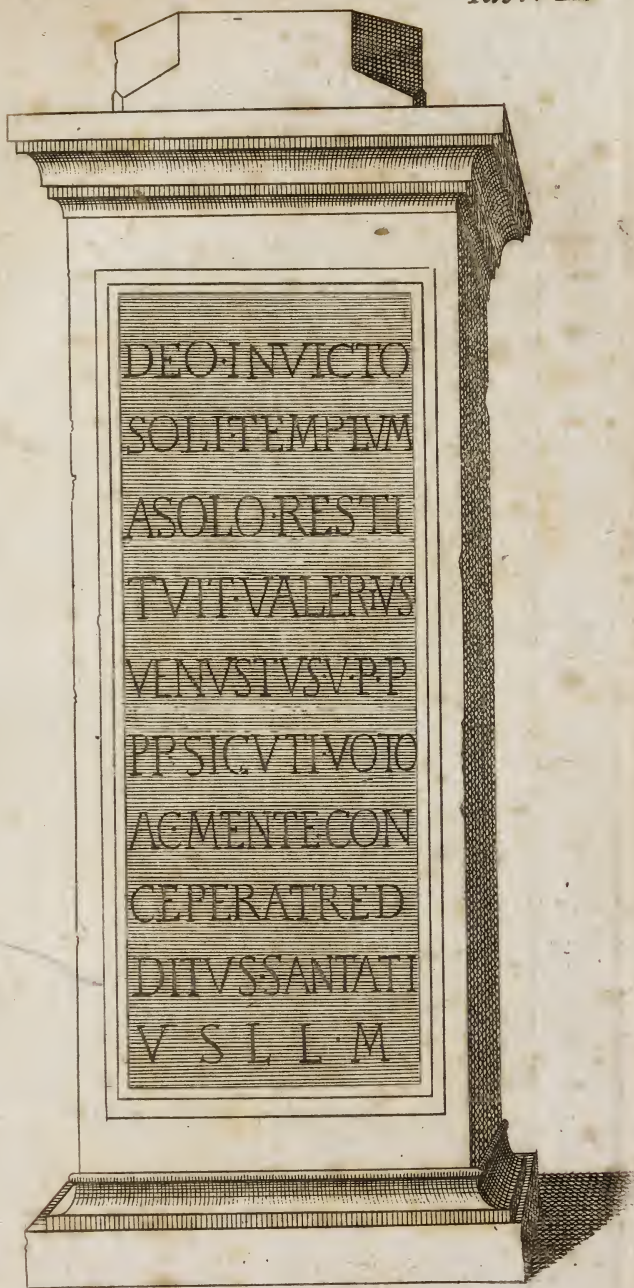 DEO·INVICTO
SOLI·TEMPLVM
ASOLO·RESTI
TVIT·VALERIVS
VENVSTVS·V·P·P
PP·SICVTI·VOTO
AC·MENTE·CON
CEPERAT·RED
DITVS·SANTATI
V S L L·M